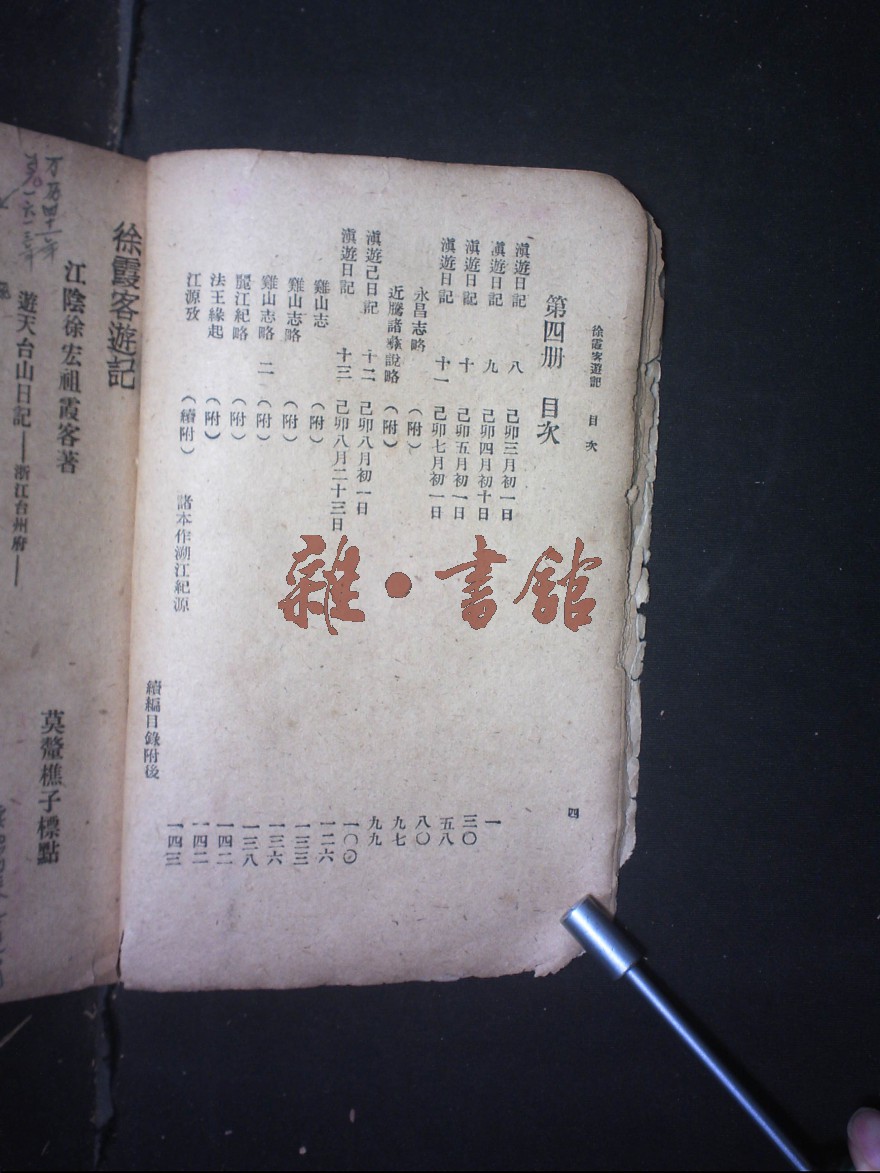 徐霞客遊記 目次 四
第四册 目次
滇遊日記 八 己卯三月初一日 一
滇遊日記 九 己卯四月初十日 三〇
滇遊日記 十 己卯五月初一日 五八
滇遊日記 十一 己卯七月初一日 八〇
永昌志略 (附) 九七
近騰諸彝說略 (附) 九九
滇遊己日記 十二 己卯八月初一日 一〇〇
滇遊日記 十三 己卯八月二十三日 一二六
雞山志 (附) 一三三
雞山志略 (附) 一三六
雞山志略 二 (附) 一三八
麗江紀略 (附) 一四二
法王緣起 (附) 一四二
江源攷 (續附) 諸本作溯江紀源 一四三
續編目錄附後
徐霞客遊記
江陰徐宏祖霞客著 莫釐樵子標點
遊天台山日記——浙江台州府——
雜·書館